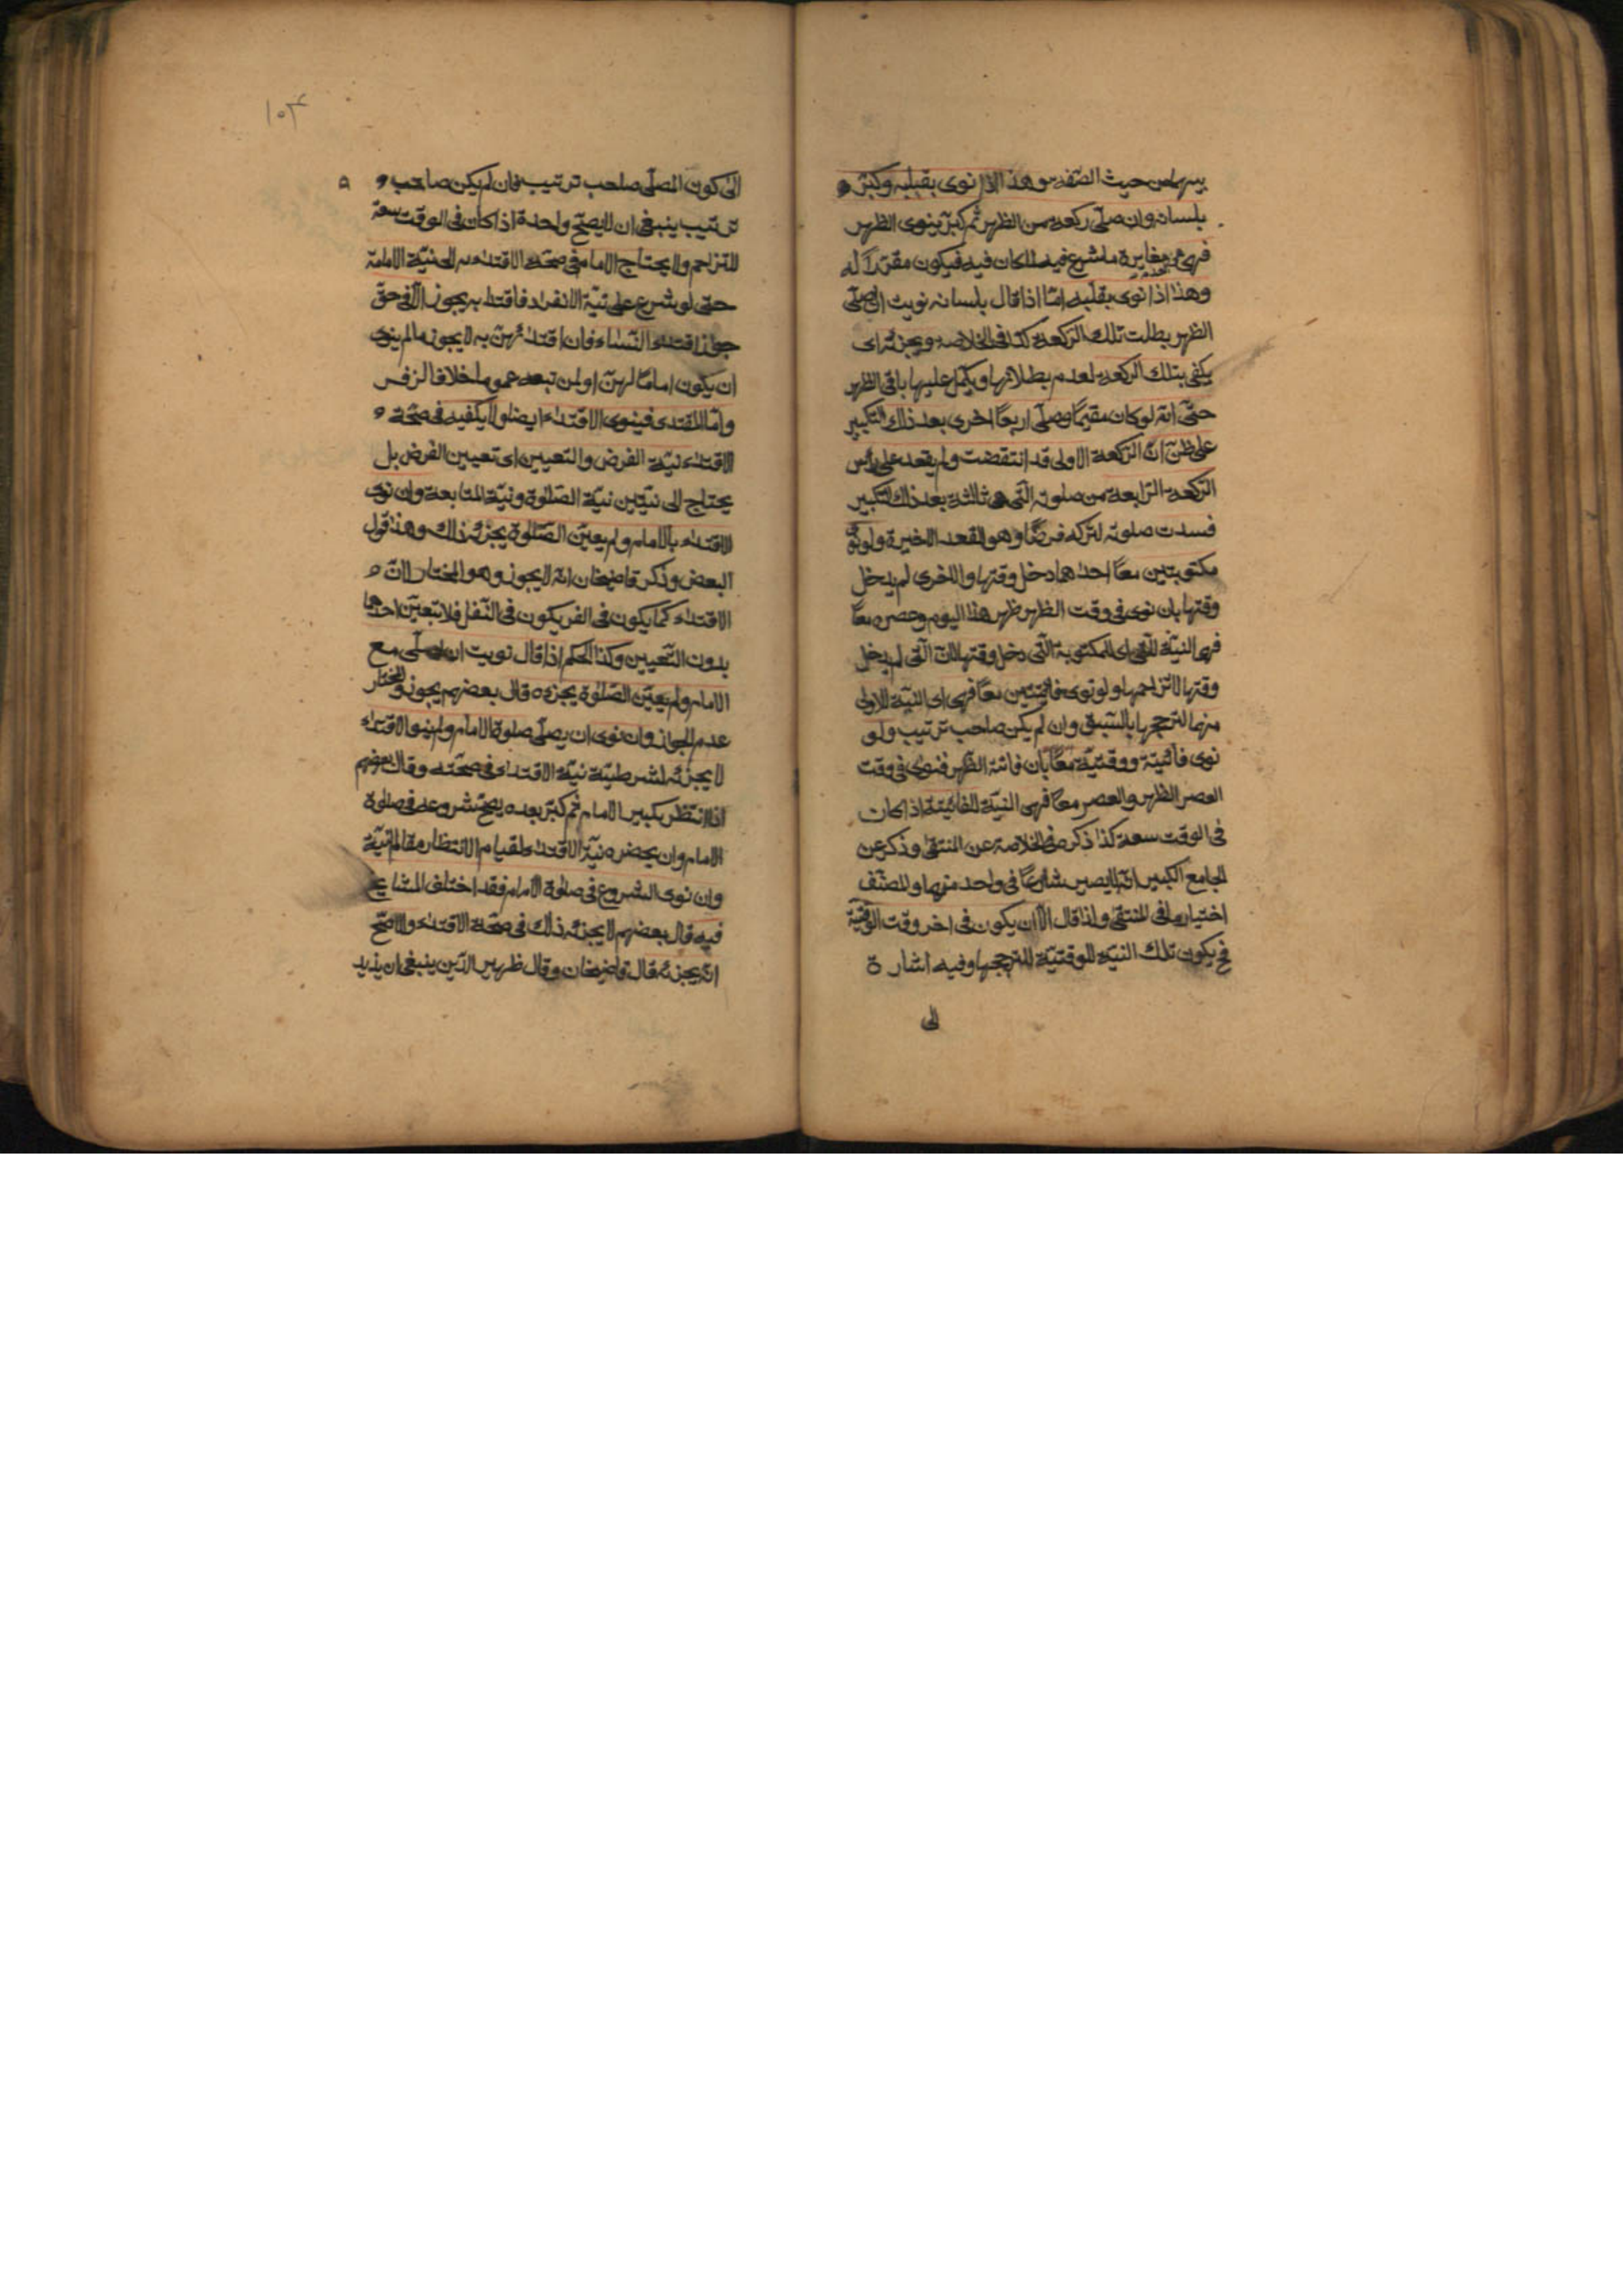 بينهما من حيث الصفة وهذا اذا نوى بقلبه وكبر
بلسانه وان صلى ركعة من الظهر ثم كبر ينوى الظهر
فهى هى لعدم مغايرة ما شرع فيه لما كان فيه فيكون مقررا له
وهذا اذا نوى بقلبه امّا اذا قال بلسانه نويت ان اصلى
الظهر بطلت تلك الركعة كذا فى الخلاصة ويجزئه اى
يكفى بتلك الركعة لعدم بطلانها ويكمل عليها باقى الظهر
حتّى انه لو كان مقيمًا وصلّى اربعًا اخرى بعد ذلك التكبير
على ظنّ انّ الركعة الاولى قد انتقضت ولم يقعد على رأس
الركعة الرّابعة من صلوته التّى هى ثالثة بعد ذلك التكبير
فسدت صلوته لتركه فرضًا وهو القعد الاخيرة ولو نوى
مكتوبتين معًا احداهما دخل وقتها والاخرى لم يدخل
وقتها بان نوى فى وقت الظهر ظهر هذا اليوم وعصره معًا
فهى النيّة للتى اى للمكتوبة الّتى دخل وقتها لانّ الّتى لم يدخل
وقتها لا تزاحمها ولو نوى فائتتين معًا فهى اى النيّة للاولى
منهما لترجحها بالسّبق وان لم يكن صاحب ترتيب ولو
نوى فائتة ووقتيّة معًا بان فاتته الظهر فنوى فى وقت
العصر الظهر والعصر معًا فهى النيّة للفائتة اذا كان
فى الوقت سعة كذا ذكر فى الخلاصة عن المنتقى وذكر عن
الجامع الكبير انّه لا يصير شارعًا فى واحد منهما وللمصنّف
اختيار ما فى المنتقى ولذا قال الّا ان يكون فى اخر وقت الوقتيّة
فح يكون تلك النيّة للوقتيّة لترجحها وفيه اشارة
الى
١٥٣
الى كون المصلّى صاحب ترتيب فان لم يكن صاحب
ترتيب ينبغى ان لا يصحّ واحدة اذا كان فى الوقت سعة
للتزاحم ولا يحتاج الامام فى صحّة الاقتداء به الى نيّة الامامة
حتى لو شرع على نيّة الانفراد فاقتدا به يجوز الّا فى حقّ
جواز اقتداء النّساء فان اقتداءهنّ به لا يجوز ما لم ينوى
ان يكون امامًا لهنّ او لمن تبعه عموما خلافا لزفر
وامّا المقتدى فينوى الاقتداء ايضا ولا يكفيه فى صحّة
الاقتداء نيّة الفرض والتعيين اى تعيين الفرض بل
يحتاج الى نيّتين نيّة الصّلوة ونيّة المتابعة وان نوى
الاقتداء بالامام ولم يعيّن الصّلوة يجزئه ذلك وهذا قول
البعض وذكر قاضيخان انّه لا يجوز وهو المختار لانّ
الاقتداء كما يكون فى الفر يكون فى النّفل فلا يتعيّن احدهما
بدون التّعيين وكذا الحكم اذا قال نويت ان اصلّى مع
الامام ولم يعيّن الصّلوة يجزءه قال بعضهم يجوز والمختار
عدم الجواز وان نوى ان يصلّى صلوة الامام ولم ينو الاقتداء
لا يجزئه لشرطيّة نيّة الاقتداء فى صحّته وقال بعضهم
اذا انتظر تكبير الامام ثم كبّر بعده يصحّ شروعه فى صلوة
الامام وان يحضره نيّة الاقتداء لقيام الانتظار مقام النيّة
وان نوى الشروع فى صلوة الامام فقد اختلف المشايخ
فيه قال بعضهم لا يجزئه ذلك فى صحّة الاقتداء والاصّح
انّه يجزئه قال قاضيخان وقال ظهير الدّين ينبغى ان يزيد